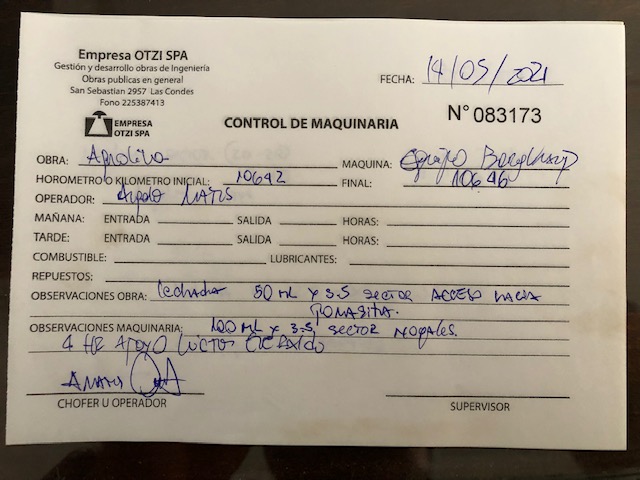 Empresa OTZI SPA
Gestión y desarrollo obras de Ingeniería
Obras publicas en general
San Sebastian 2957 Las Condes
Fono 225387413
EMPRESA
OTZI SPA
FECHA: 14/05/2021
CONTROL DE MAQUINARIA N° 083173
OBRA: MAQUINA: Equipo
HOROMETRO & KILOMETRO INICIAL: 10642 FINAL: 10646
OPERADOR:
MAÑANA: ENTRADA SALIDA HORAS:
TARDE: ENTRADA SALIDA HORAS:
COMBUSTIBLE: LUBRICANTES:
REPUESTOS:
OBSERVACIONES OBRA: 50 ml y 3.5 sector ACCESO
OBSERVACIONES MAQUINARIA: 100 ml y 3.5 sector nogales.
4 HR APOYO
CHOFER U OPERADOR SUPERVISOR